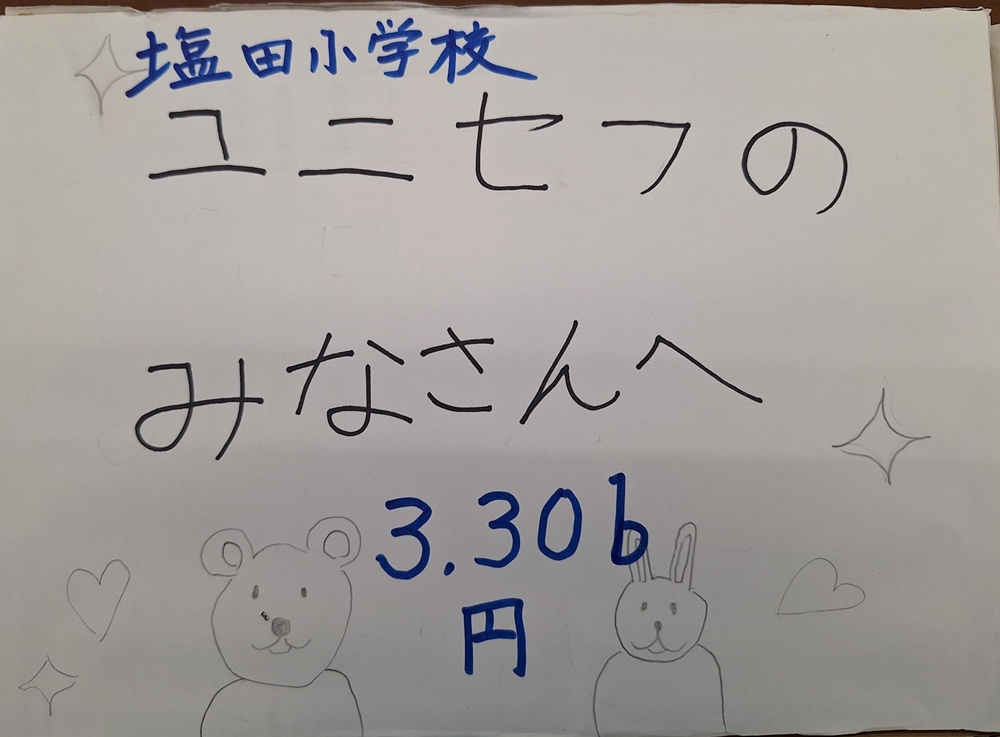 塩田小学校
ユニセフの
みなさんへ
3.306
円